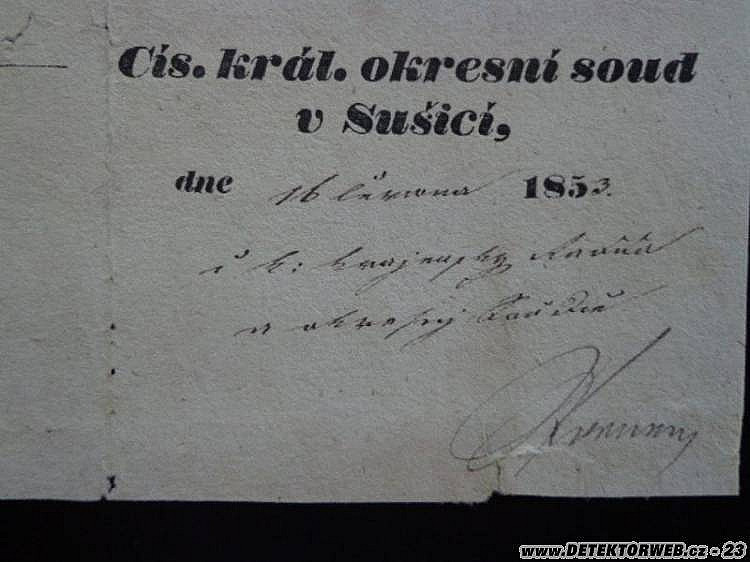 Cís. král. okresní soud
v Sušicí,
dne 16 června 1853.
c k: krajenský
a okresný
www.DETEKTORWEB.cz - 23